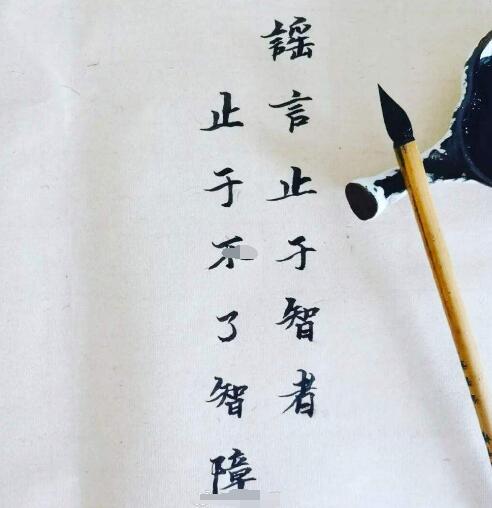 謠言止于智者
止于不了智障